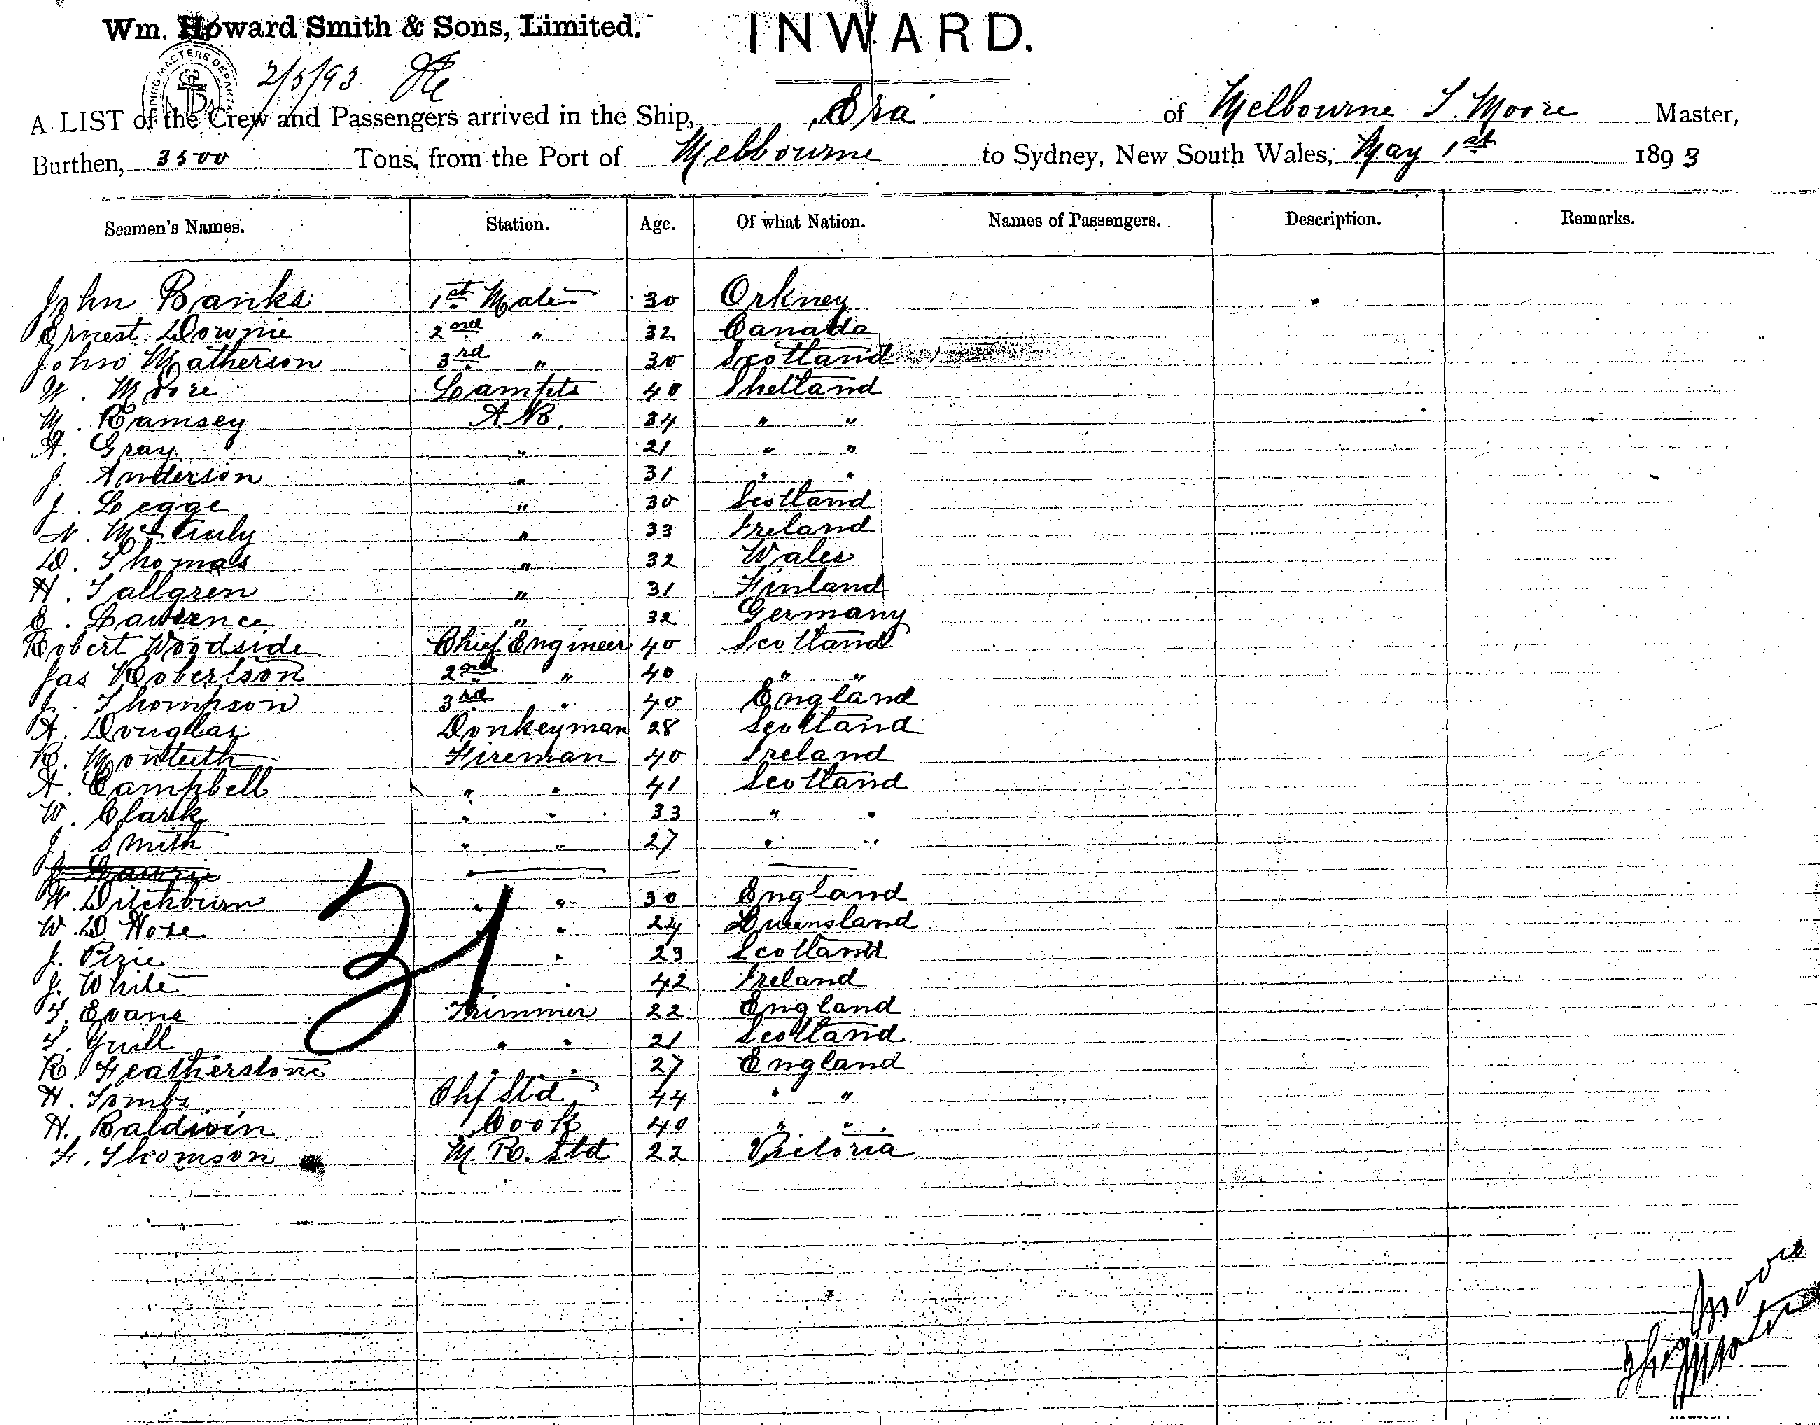 Wm. Howard Smith & Sons, Limited.
INWARD.
2/5/93
A LIST of the Crew and Passengers arrived in the Ship, Era of Melbourne T. Moore Master,
Burthen, 3500 Tons, from the Port of Melbourne to Sydney, New South Wales, May 1st 1893
Seamen's Names. Station. Age. Of what Nation. Names of Passengers. Description. Remarks.
John Banks 1st Mate 30 Orkney
Ernest Downie 2nd " 32 Canada
John Matherson 3rd " 30 Scotland
W. Moore Lampts 40 Shetland
M. Ramsey A B. 34 " "
A. Gray " 21 " "
J. Anderson " 31 " "
J. Legge " 30 Scotland
N. " 33 Ireland
D. Thomas " 32 Wales
H. Tallgren " 31 Finland
E. Lawrence " 32 Germany
Robert Woodside Chief Engineer 40 Scotland
Jas Robertson 2nd " 40 " "
J. Thompson 3rd " 40 England
A. Douglas Donkeyman 28 Scotland
R. Monteith Fireman 40 Ireland
A. Campbell " " 41 Scotland
W. Clark " " 33 " "
J. Smith " " 27 " "
J.
W. Ditchburn " " 30 England
W. D Hose " 24 Queensland
J. Pirie " 23 Scotland
J. White " 42 Ireland
31
T. Evans Trimmer 22 England
T. " " 21 Scotland
R. Featherstone " " 27 England
H. Tombs Chf Std 44 " "
H. Baldwin Cook 40 " "
F. Thomson M R. Std 22 Victoria
Moore